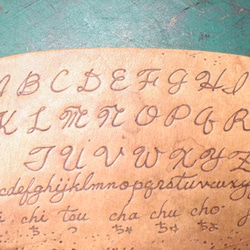 A B C D E F G H I
K L M N O P Q R
T U V W X Y Z
cdefghijklmnopqrstuvwxy
chi tou cha chu cho
ち つ ちゃ ちゅ ちょ